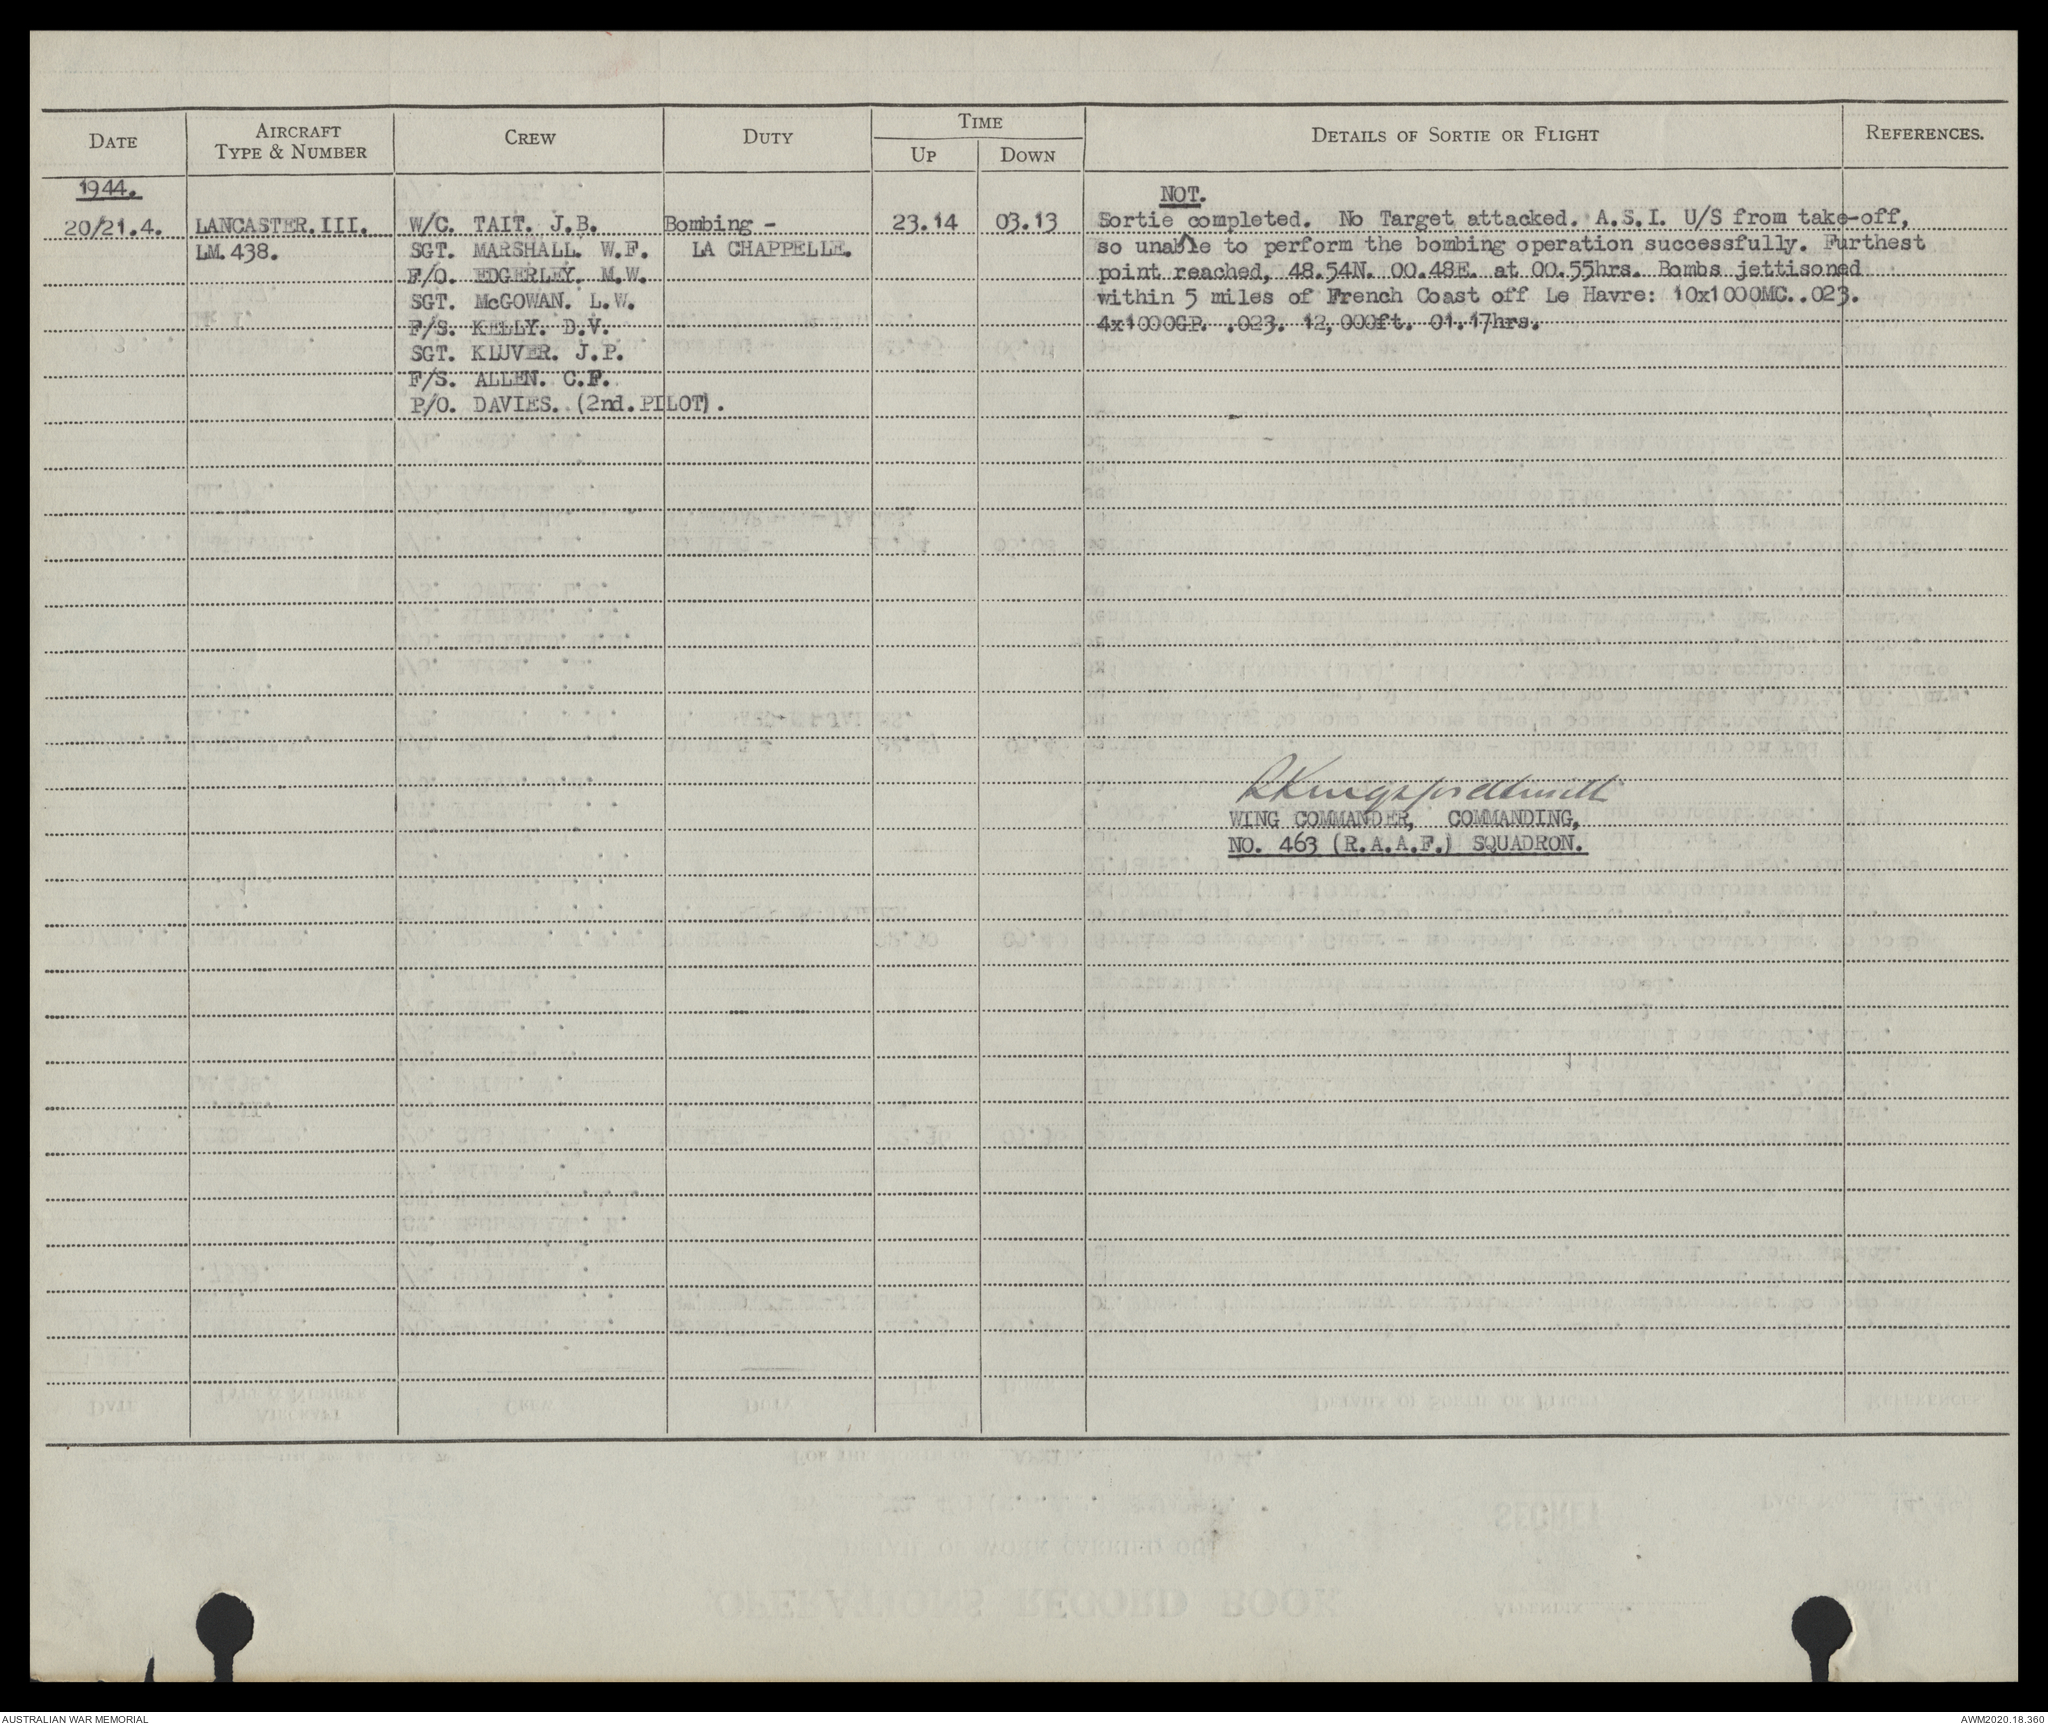 DATE
AIRCRAFT
TYPE & NUMBER
CREW
DUTY
TIME
UP
DOWN
DETAILS OF SORTIE OR FLIGHT
REFERENCES.
1944.
20/21.4.
LANCASTER.III.
LM.438.
W/C. TAIT. J.B.
SGT. MARSHALL. W.F.
F/O. EDGERLEY. M.W.
SGT. McGOWAN. L.W.
F/S. KELLY. D.V.
SGT. KLUVER. J.P.
F/S. ALLEN. C.F.
P/O. DAVIES. (2nd.PILOT).
Bombing -
LA CHAPPELLE.
23.14
03.13
NOT.
Sortie completed. No Target attacked. A.S.I. U/S from take-off,
so unable to perform the bombing operation successfully. Furthest
point reached, 48.54N. 00.48E. at 00.55hrs. Bombs jettisoned
within 5 miles of French Coast off Le Havre: 10x1000MC..023.
4x1000GP. .023. 12,000ft. 01.17hrs.
RKingsfordSmith
WING COMMANDER, COMMANDING,
NO. 463 (R.A.A.F.) SQUADRON.
AUSTRALIAN WAR MEMORIAL
AWM2020.18.360